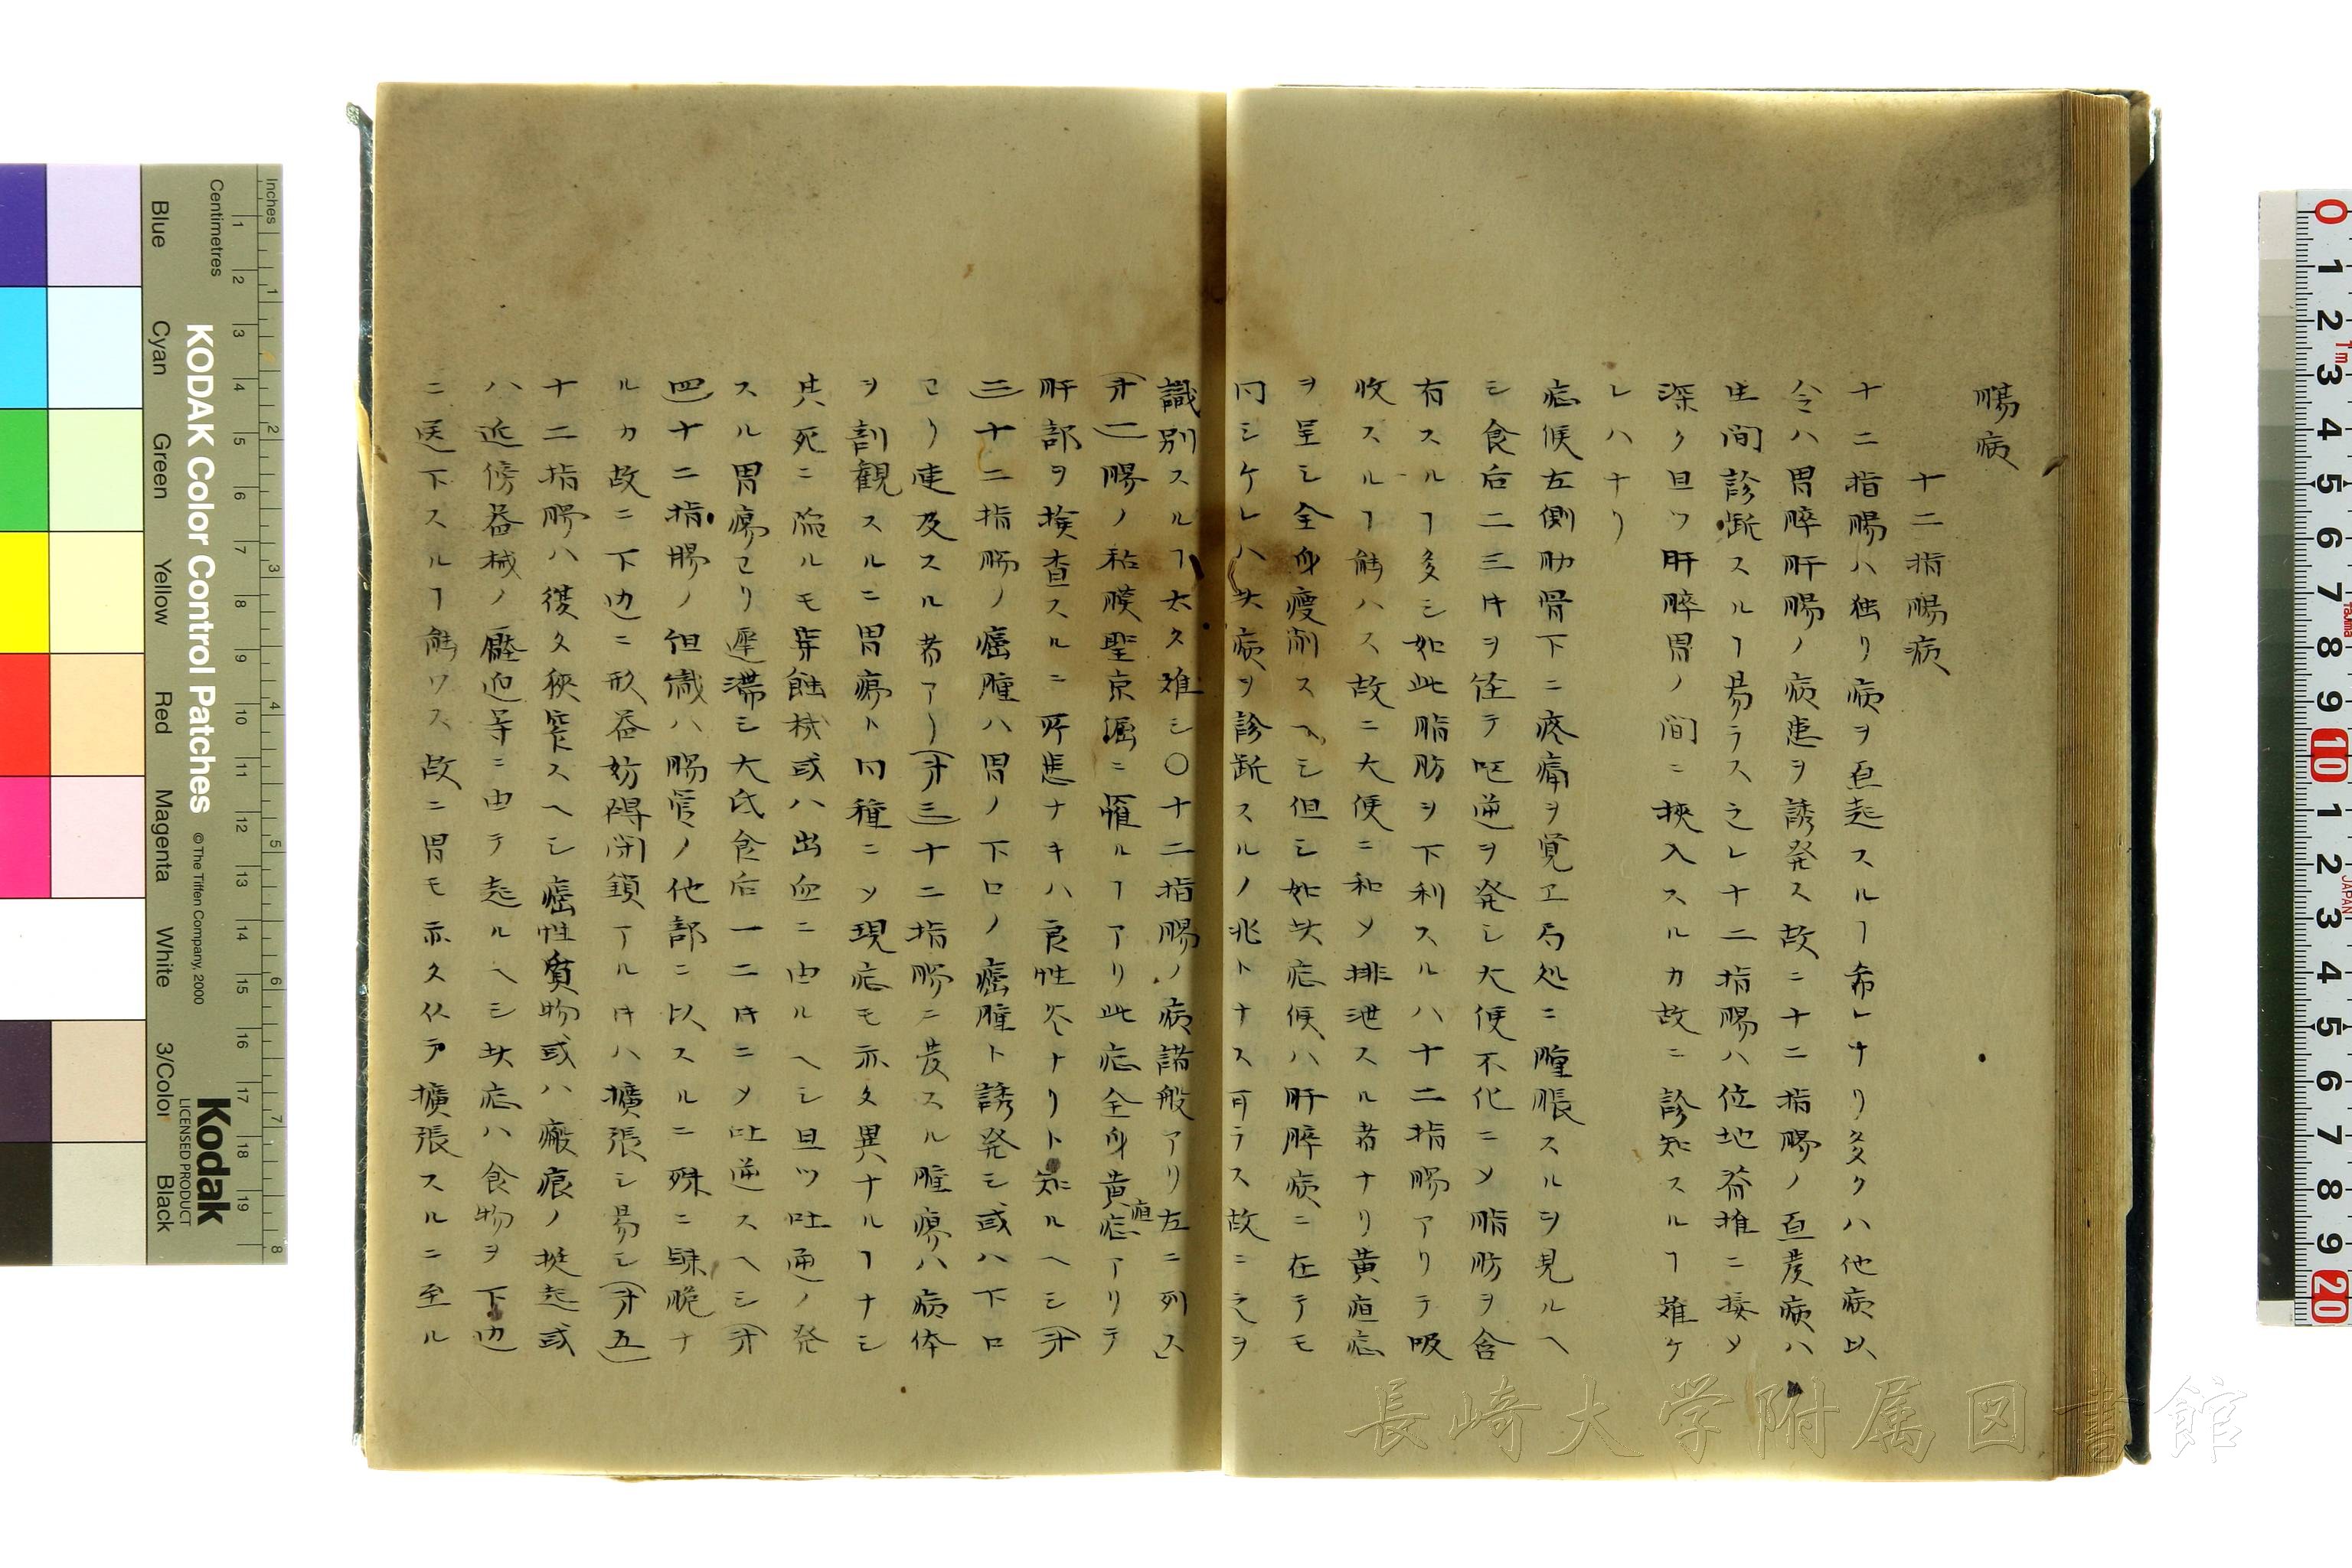 腸病
十二指腸病
十二指腸ハ独リ病ヲ亘起スルヿ希レナリ多クハ他病以
令ハ胃膵肝腸ノ病患ヲ誘発ス故ニ十二指腸ノ亘発病ハ
生間診断スルヿ易ラス之レ十二指腸ハ位地脊椎ニ接メ
深ク且ツ肝膵胃ノ間ニ挾入スルカ故ニ診知スルヿ難ケ
レハナリ
症候左側肋骨下ニ疼痛ヲ覚エ局処ニ腫脹スルヲ見ルヘ
シ食后二三时ヲ径テ呕逆ヲ発シ大便不化ニメ脂肪ヲ含
有スルヿ多シ如此脂肪ヲ下利スルハ十二指腸アリテ吸
收スルヿ能ハス故ニ大便ニ和メ排泄スル者ナリ黄疸症
ヲ呈シ全身痩削スヘシ但シ如斯症候ハ肝膵病ニ在テモ
同シケレハ夫病ヲ診断スルノ兆トナス可ラス故ニ之ヲ
識別スルヿ太タ难シ〇十二指腸ノ病諸般アリ左ニ列ス」
(第一)腸ノ粘膜聖京偓ニ罹ルヿアリ此症全身黄疸症アリテ
肝部ヲ挨査スルニ所患ナキハ良性炎ナリト知ルヘシ(第
二)十二指腸ノ癌腫ハ胃ノ下口ノ癌腫ト誘発シ或ハ下口
ヨリ連及スル者アリ(第三)十二指腸ニ发スル腫瘍ハ病体
ヲ割観スルニ胃瘍ト同種ニメ現症モ亦タ異ナルヿナシ
共死ニ陥ルモ穿蝕機或ハ出血ニ由ルヘシ且ツ吐逆ノ発
スル胃瘍ヨリ遅滞シ大氐食后一二时ニメ吐逆スヘシ(第
四)十二指腸ノ但織ハ腸管ノ他部ニ以スルニ殊ニ緑脆ナ
ルカ故ニ下辺ニ形器妨碍闭鎖アル时ハ擴張シ易シ(第五)
十二指腸ハ後タ狹窄スヘシ癌性質物或ハ瘢痕ノ挺起或
ハ近傍器械ノ壓迫等ニ由テ起ルヘシ夫症ハ食物ヲ下辺
ニ送下スルヿ能ワス故ニ胃モ亦タ从テ擴張スルニ至ル
Blue
Cyan
Green
Yellow
Red
Magenta
White
3/Color
Black
Inches
Centimetres
KODAK Color Control Patches
© The Tiffen Company, 2000
Kodak
LICENSED PRODUCT
JAPAN
長崎大学附属図書館